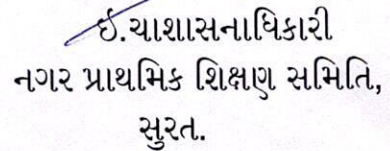 ઈ.ચાશાસનાધિકારી
નગર પ્રાથમિક શિક્ષણ સમિતિ,
સુરત.